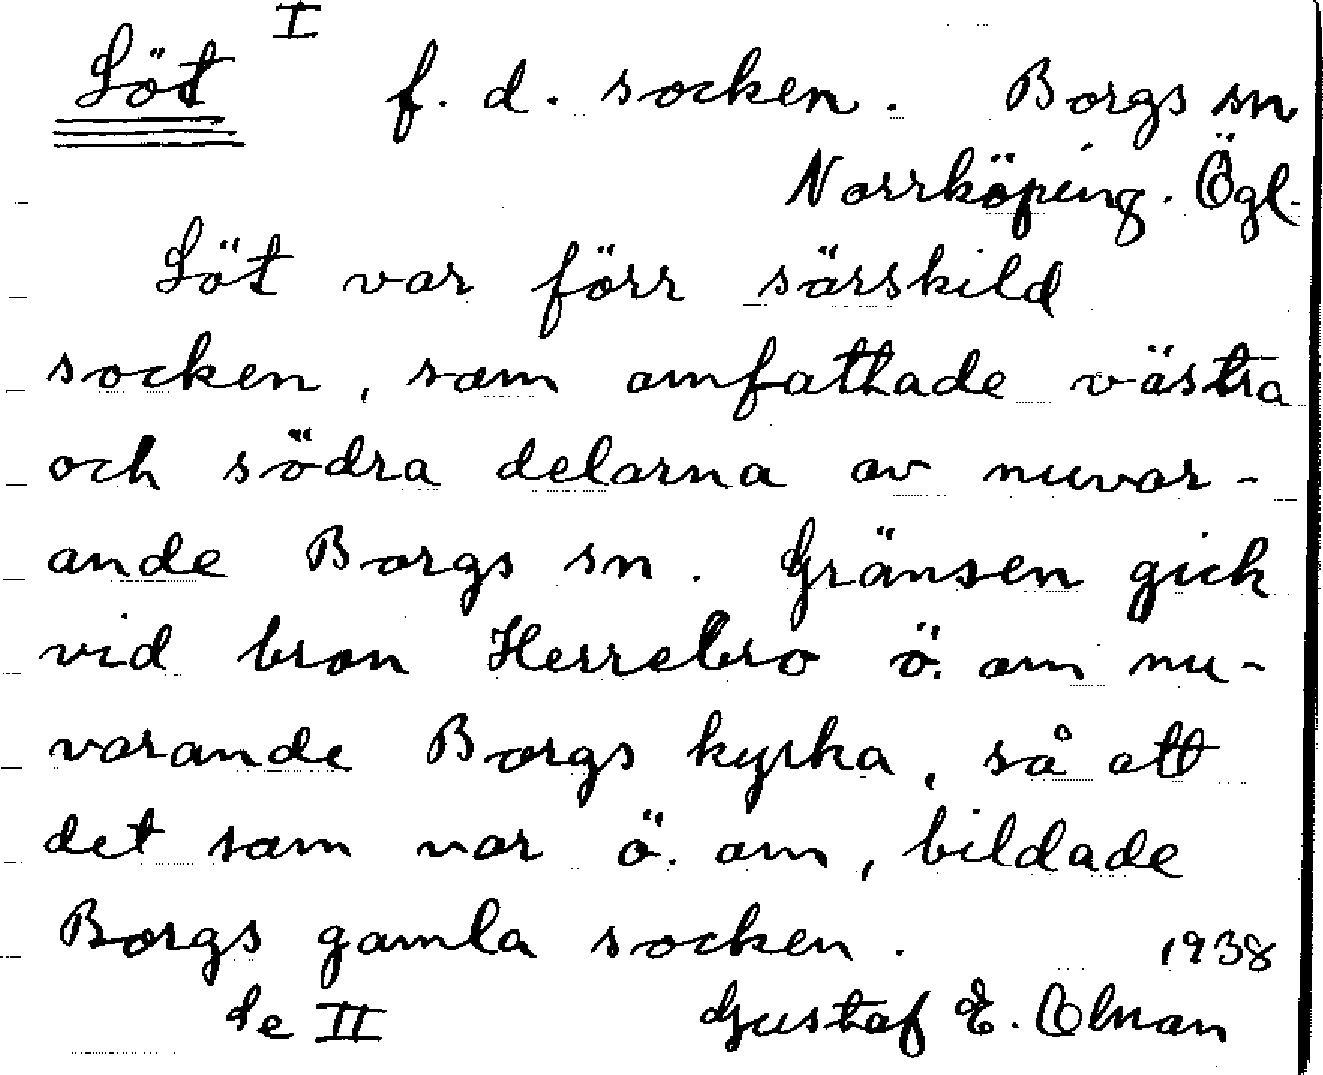 I
Löt f. d. socken. Borgs sn
Norrköping. Ögl.
Löt var förr särskild
socken, som omfattade västra
och södra delarna av nuvar-
ande Borgs sn. Gränsen gick
vid bron Herrebro ö. om nu-
varande Borgs kyrka, så att
det som var ö. om, bildade
Borgs gamla socken. 1938
Se II Gustaf E. Olman